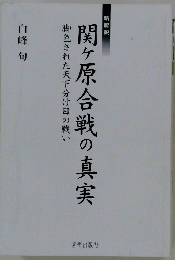 新解釈
関ヶ原合戦の真実
脚色された天下分け目の戦い
白峰 旬
宮帯出版社